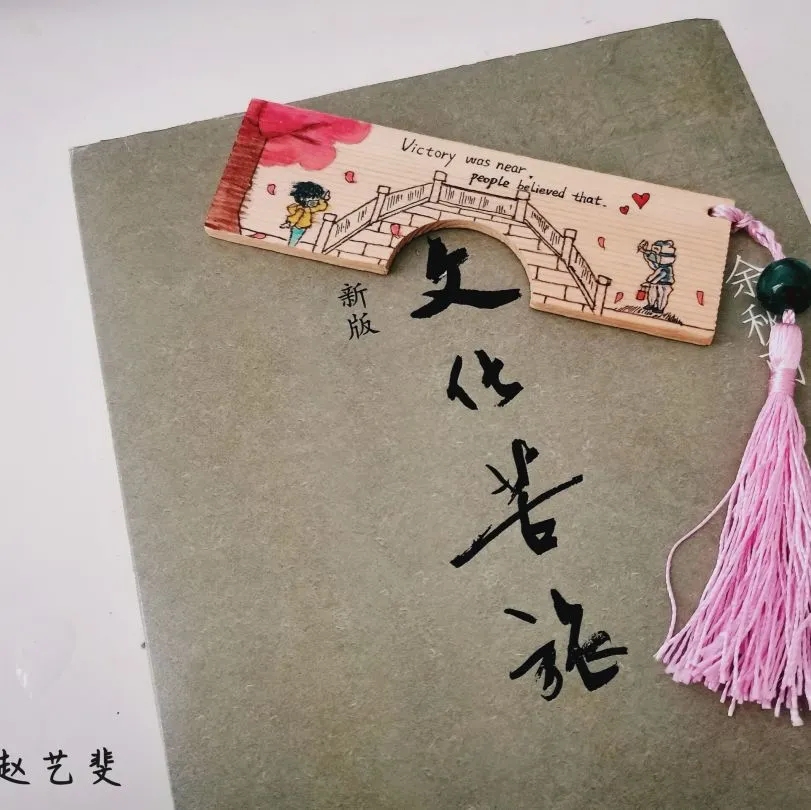 Victory was near,
people believed that.
新版
文化苦旅
余秋
赵艺斐